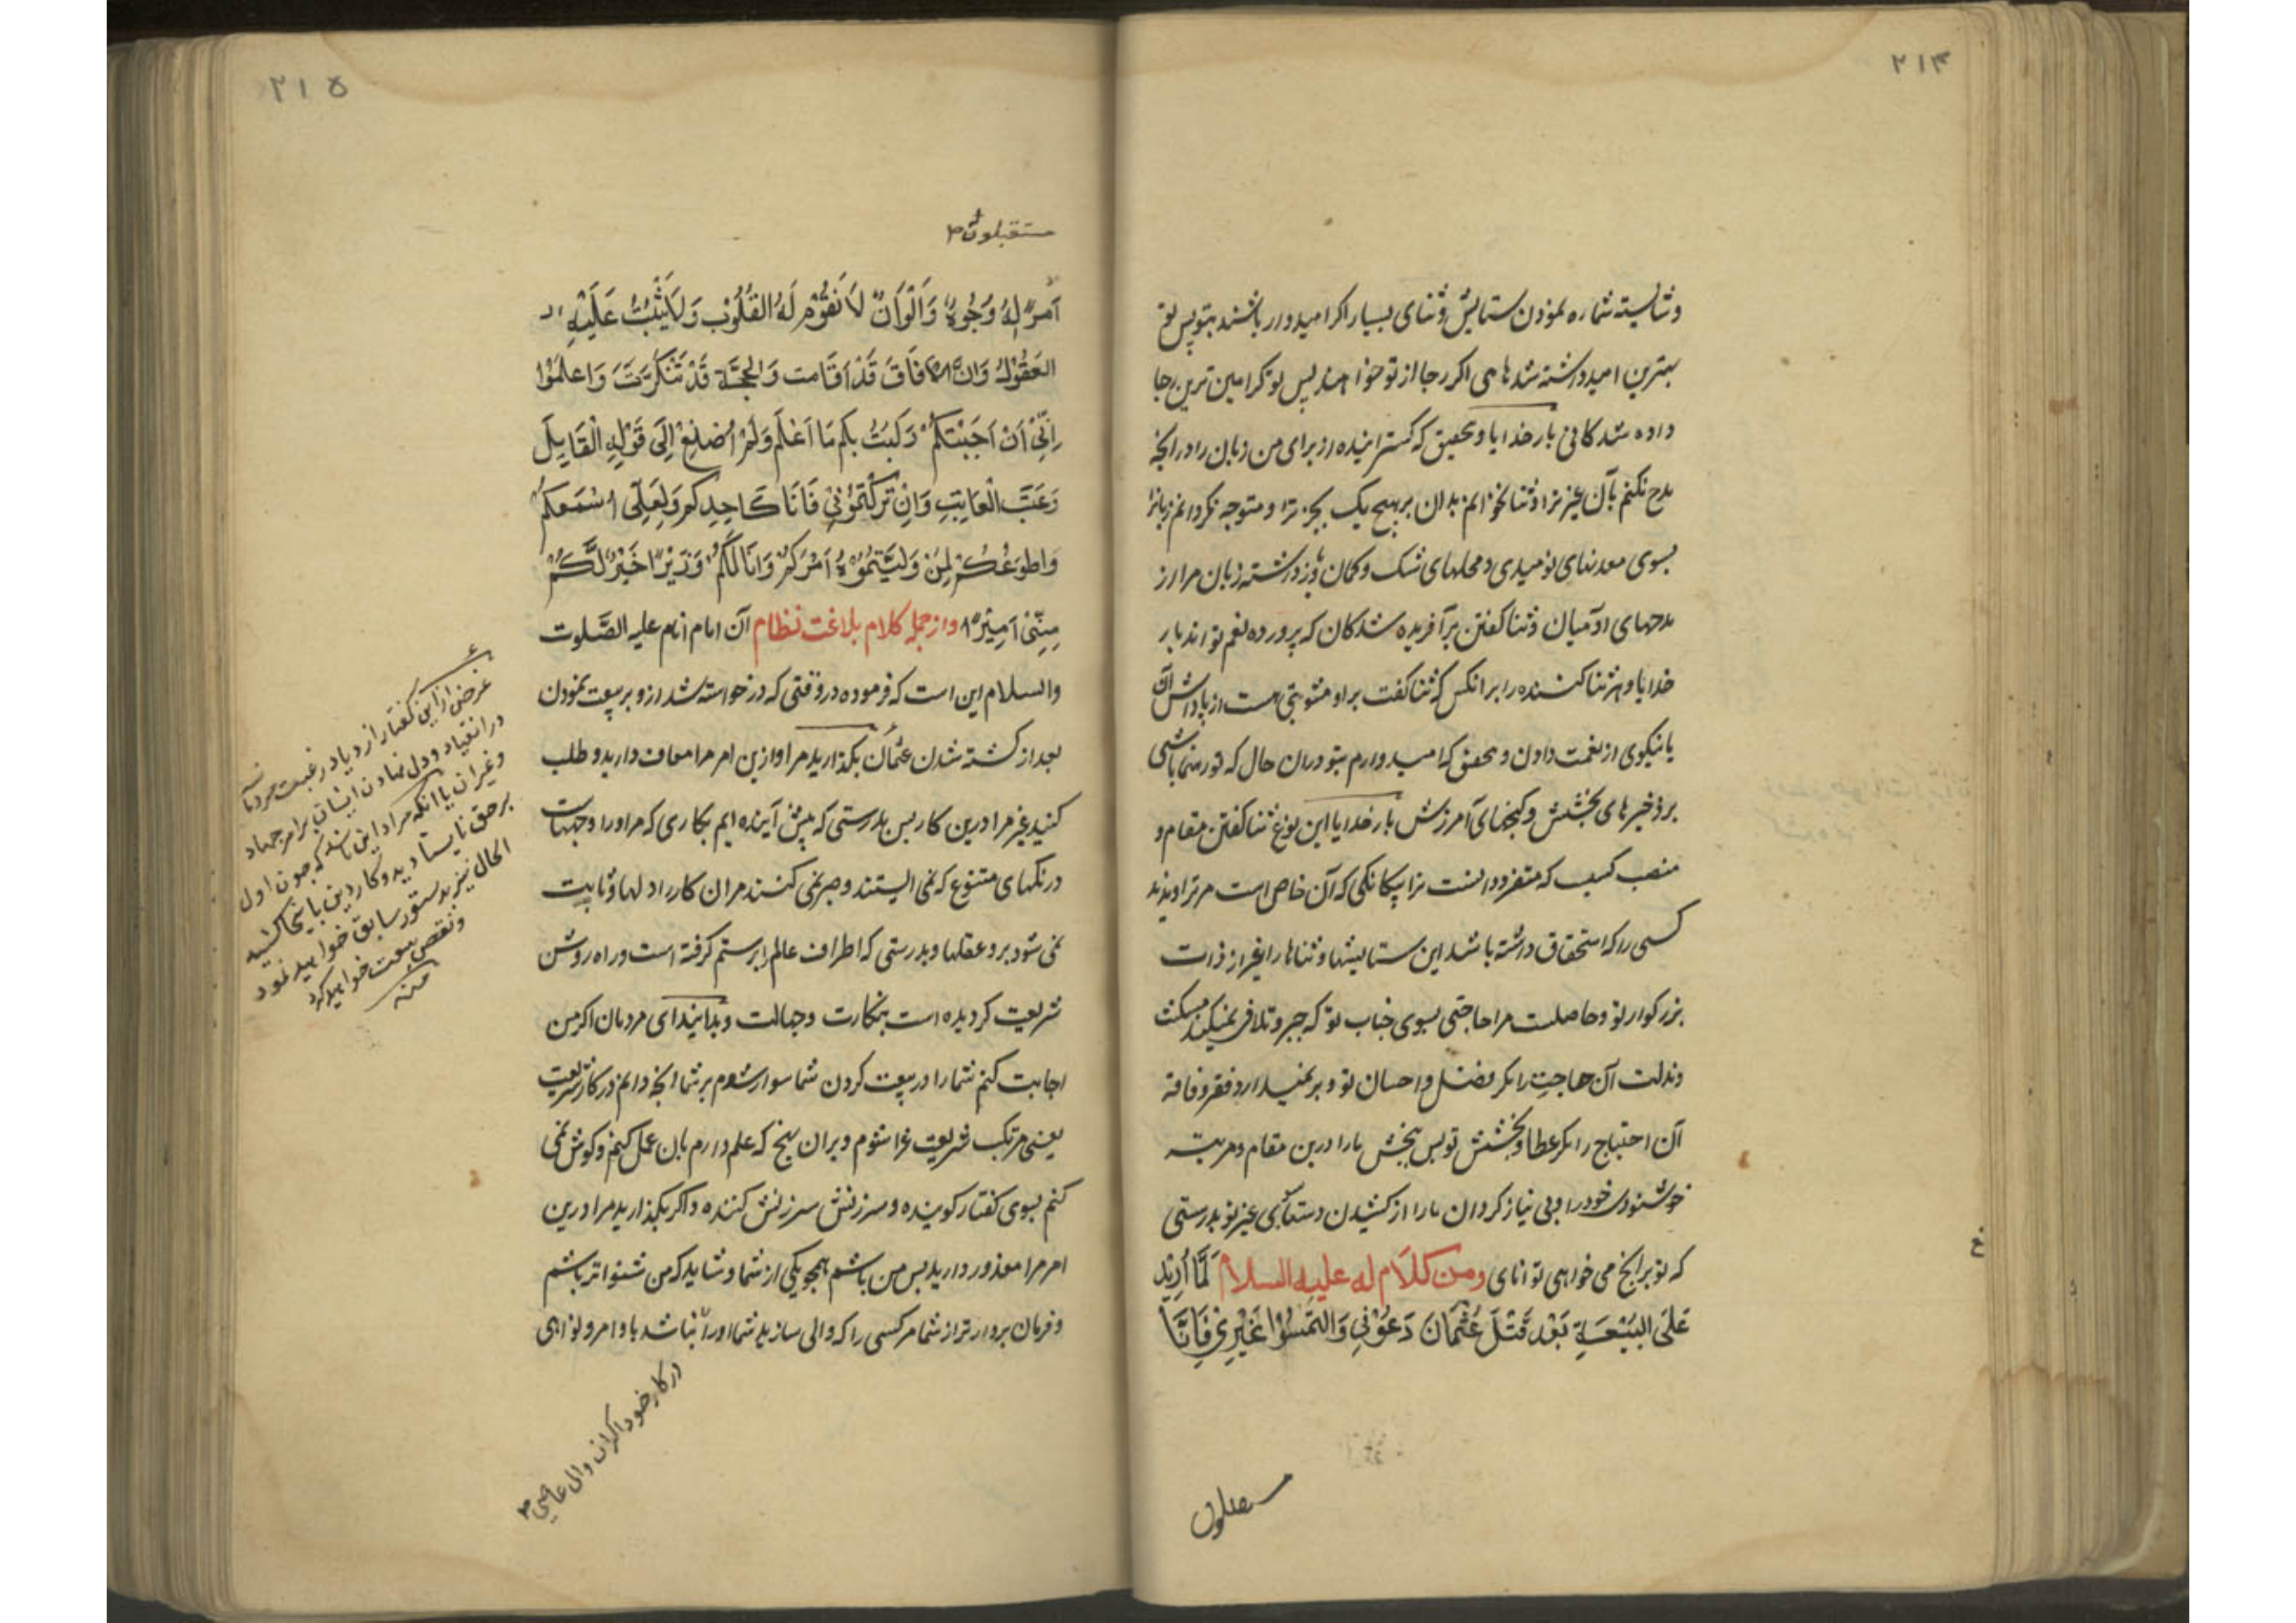 ۲۱۴
وشایسته شماره نمودن ستایش وثنای بسیار اگر امیدوار باشند بتو پس تو
بهترین امید داشته شدهای اگر رجا از تو خواهند پس تو گرامی‌ترین رجا
داده شدگانی بار خدایا وبحقیق که گسترانیده از برای من زبان را در آنچه
مدح نکنم بآن غیر ترا وثنا نخوانم بدان بر هیچ یک بجز ترا و متوجه نگردانم زبانرا
بسوی معدنهای نومیدی ومحلهای شک وکمان وباز داشته زبان مرا از
مدحهای آدمیان وثنا گفتن بر آفریده شدگان که پرورده نعم تواند بار
خدایا وهر ثنا کننده را بر آنکس که ثنا گفت بر او مثوبتی هست از پاداش آن
یا نیکوی از نعمت دادن وبحقیق که امید وارم بتو در آن حال که تو رهنما باشی
بر ذخیرهای بخشش وگنجهای آمرزش بار خدایا این نوع ثنا گفتن مقام و
منصب کسیست که متفرد دانست ترا بیگانگی که آن خاص است مر ترا وندید
کسی را که استحقاق داشته باشد این ستایشها وثناها را غیر از ذات
بزرگوار تو وحاصلست مرا حاجتی بسوی جناب تو که جبر وتلافی نمیکند مسکنت
ومذلت آن حاجت را مگر فضل واحسان تو و بر نمیدارد فقر وفاقه
آن احتیاج را مگر عطا وبخشش تو پس ببخش ما را درین مقام ومرتبه
خوشنودی خود را وبی نیاز گردان ما را از کشیدن دستهای بغیر تو بدرستی
که تو بر آنچه می خواهی توانای ومن کلام له علیه السلام لَمَّا أُرِيدَ
عَلَى البَيْعَةِ بَعْدَ قَتْلِ عُثْمَانَ دَعُوْنِي وَالتَمِسُوْا غَيْرِي فَاِنَّا
مستقبلون
۲۱۵
مستقبلون
اَمرًا لَهُ وُجُوهٌ وَاَلْوَانٌ لَا تَقُوْمُ لَهُ القُلُوْبُ وَلَا يَثْبُتُ عَلَيْهِ
العُقُوْلُ وَاِنَّ الآفَاقَ قَدْ اَغَامَت وَالمحَجَّةَ قَدْ تَنَكَّرَتْ وَاعلَمُوْا
اِنِّيْ اَنْ اَجَبْتُكُمْ رَكِبتُ بِكُم مَا اَعْلَم وَلَمْ اُصْغِ اِلَى قَوْلِ القَايِلِ
وَعَتْبِ العَاتِبِ وَاِنْ تَرَكْتُمُوْنِيْ فَاَنَا كَاَحَدِكُم وَلَعَلِّي اَسْمَعُكُمْ
وَاطوَعُكُمْ لِمَنْ وَلَّيْتُمُوْهُ اَمْرَكُمْ وَاَنَا لَكُمْ وَزِيْرًا خَيْرٌ لَّكُمْ
مِنِّيْ اَمِيْرًا واز جمله کلام بلاغت نظام آن امام انام علیه الصّلوت
والسلام این است که فرموده در وقتی که درخواسته شد ازو بر بیعت نمودن
بعد از کشته شدن عثمان بگذارید مرا و ازین امر مرا معاف دارید وطلب
کنید غیر مرا درین کار پس بدرستی که پیش آینده ایم بکاری که مر او را وجهاست
ورنگهای متنوع که نمی ایستند وصبر نمی کنند مر آن کار را دلها وثابت
نمی شود برو عقلها وبدرستی که اطراف عالم را ابر ستم گرفته است وراه روشن
شریعت گردیده است بنکارت وجهالت وبدانید ای مردمان اگر من
اجابت کنم شما را در بیعت کردن شما سوار شوم بر شما آنچه دانم در کار شریعت
یعنی مرتکب شریعت غرا شوم وبر آن نهج که علم دارم بآن عمل کنم وگوش نمی
کنم بسوی گفتار گوینده وسرزنش سرزنش کننده واگر بگذارید مرا درین
امر مرا معذور دارید پس من باشم همچو یکی از شما وشاید که من شنواتر باشم
وفرمان بردارتر از شما مر کسی را که والی سازید شما او را باشد با وامر ونواهی
در کار خود اگر آن والی عاصی
غرض ازین گفتار ازدیاد رغبت مردمانست
در انقیاد ودل نهادن ایشان بر امر جهاد
وغیر آن یا آنکه مراد این باشد که چون اول
بر حق نایستادید وکار دین باینجا کشید
الحال نیز بدستور سابق خواهید نمود
ونقض بیعت خواهید کرد
منه